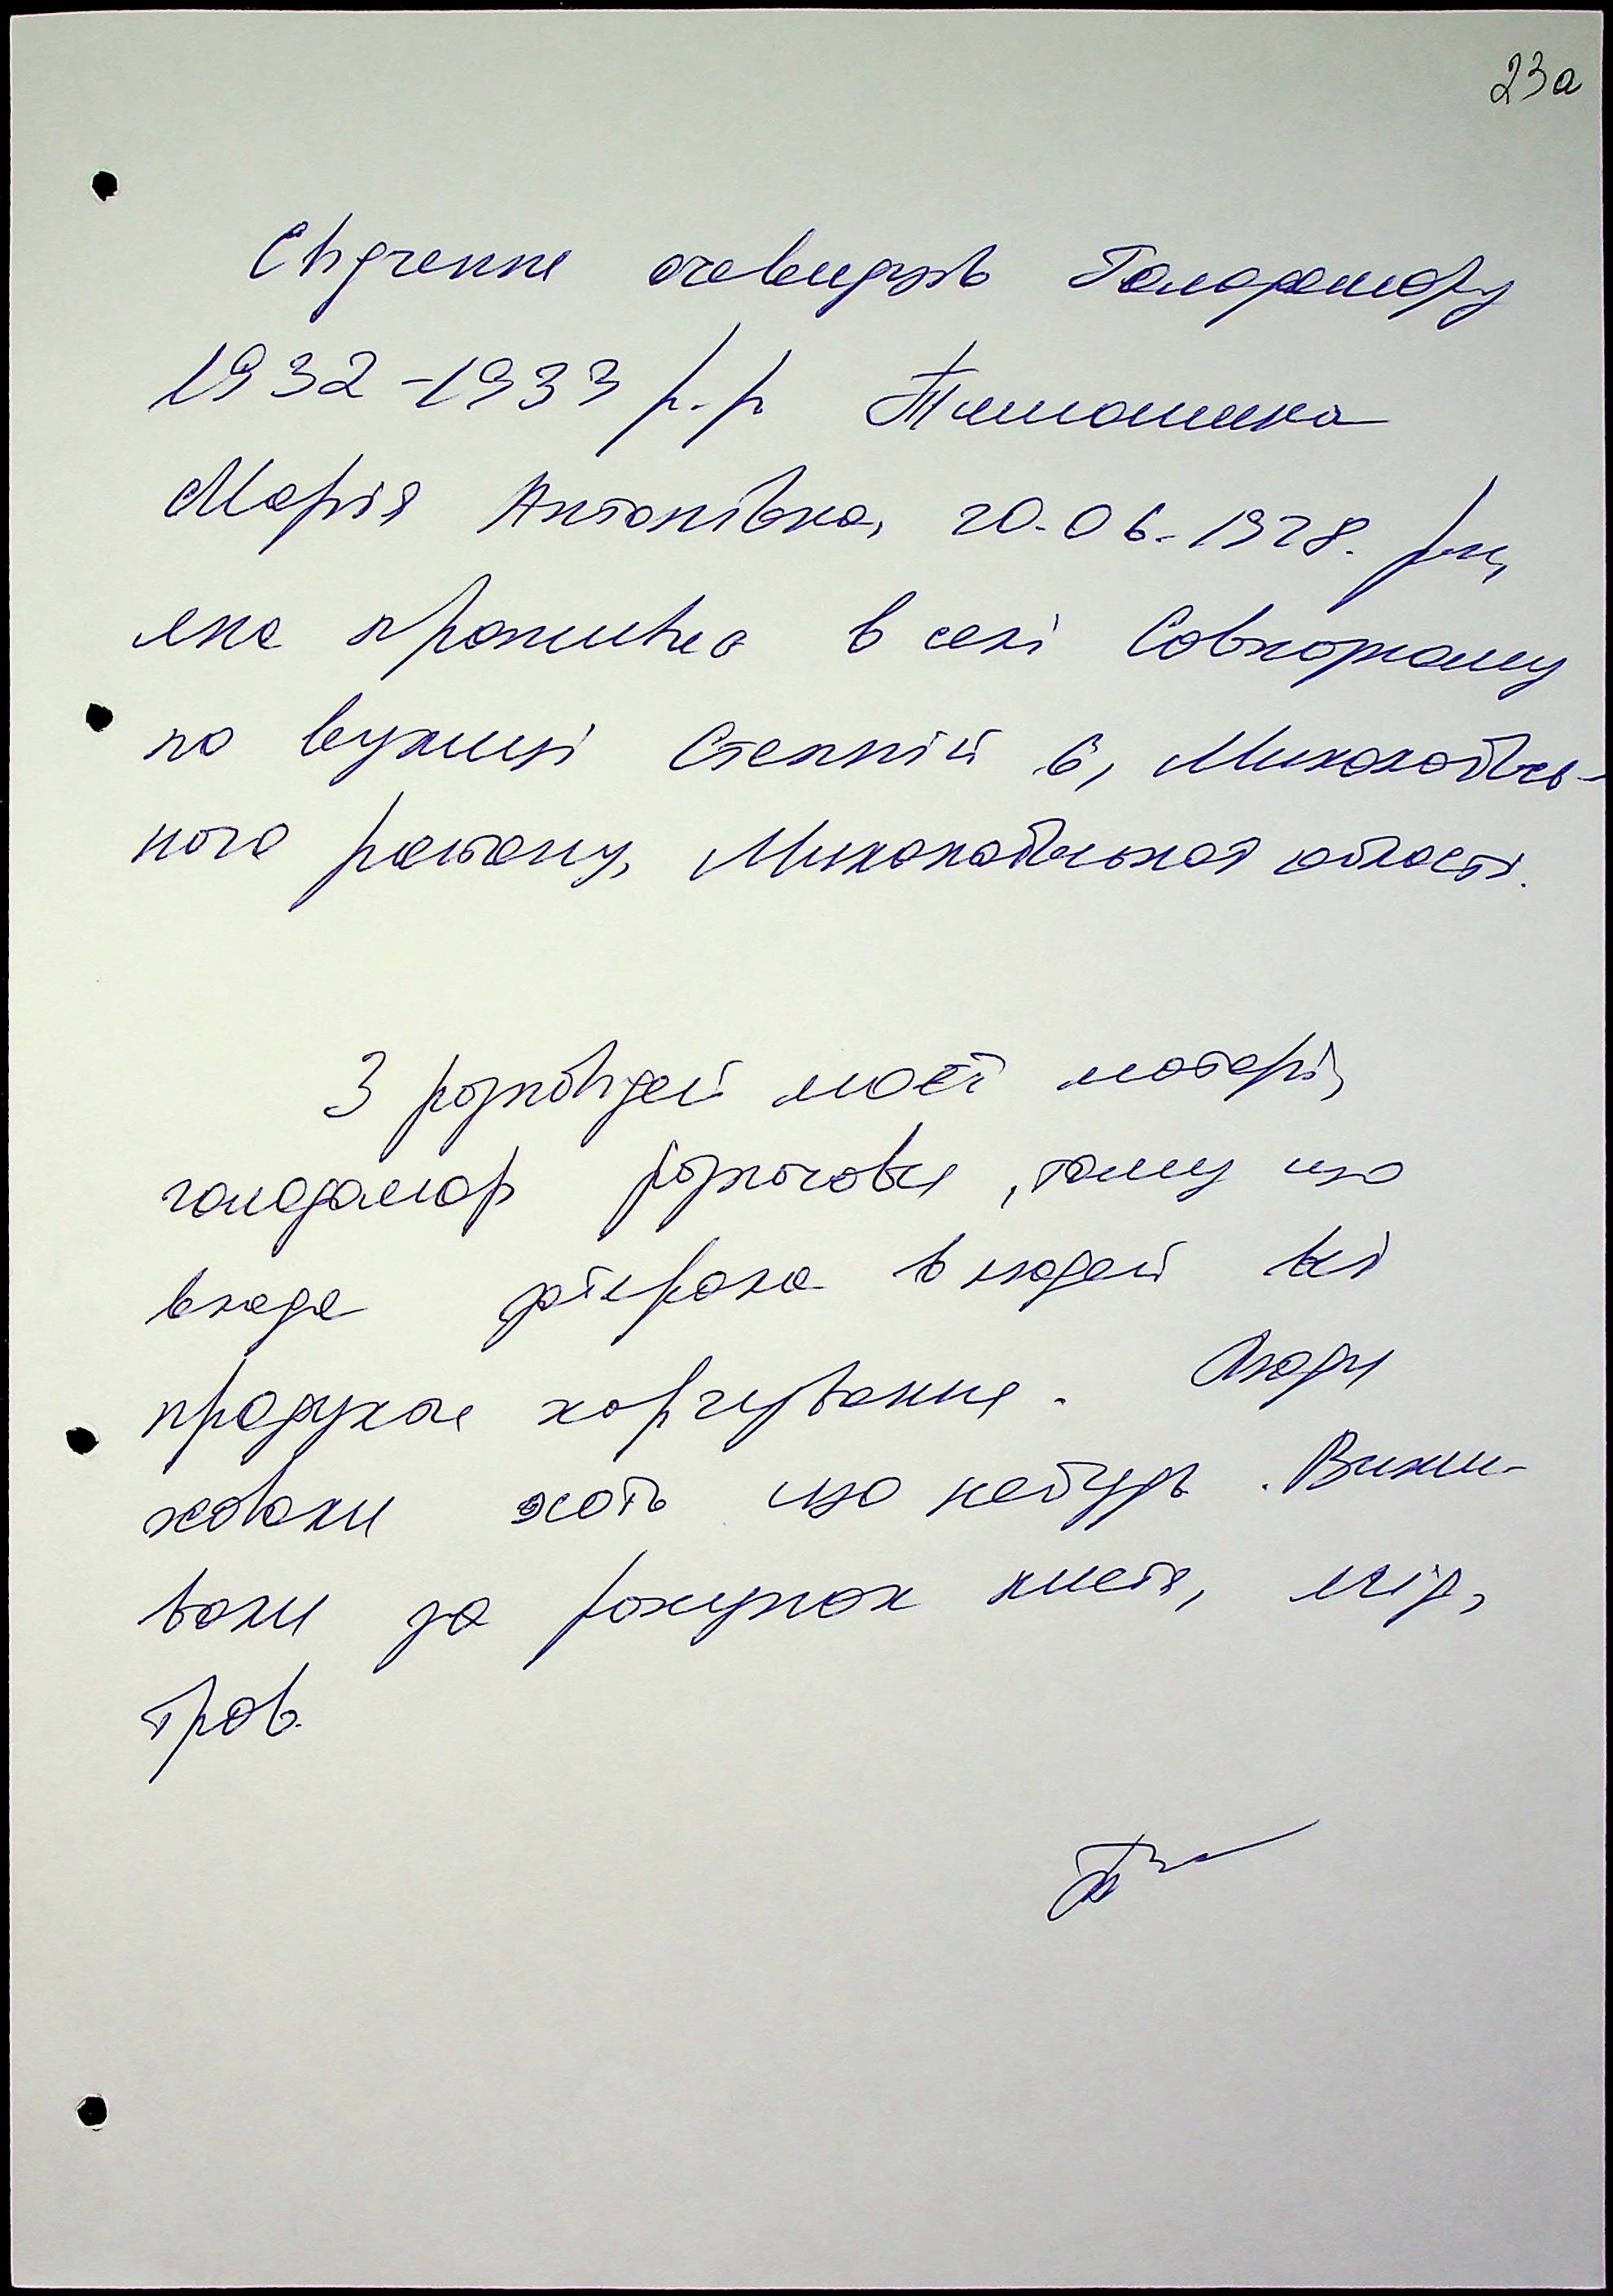 23а
Свідчення очевидців Голодомору
1932-1933 р.р Тимошенко
Марія Антонівна, 20.06.1928. р.н,
яка проживає в селі
по вулиці Степній 6, Миколаївсь-
кого району, Миколаївської області.
З розповідей моєї матері,
голодомор розпочався, тому що
влада забирала в людей всі
продукти харчування. Люди
ховали хоть що небудь. Вижи-
вали за рахунок листя,
трав.